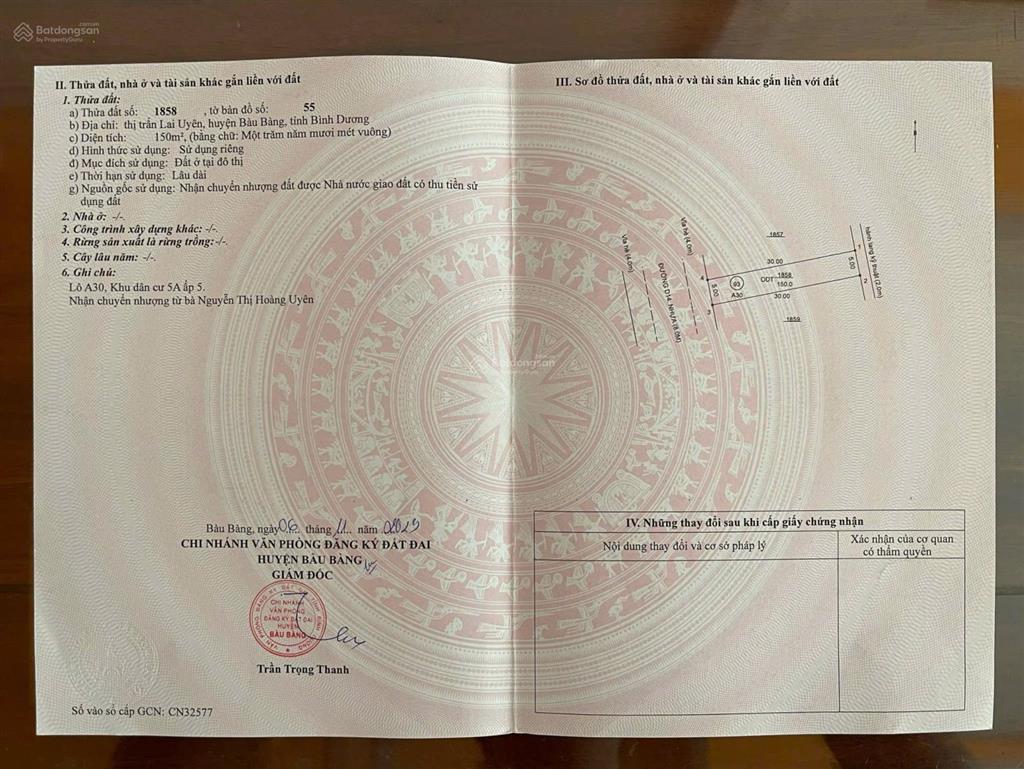 Batdongsan.com.vn
by PropertyGuru
II. Thửa đất, nhà ở và tài sản khác gắn liền với đất
1. Thửa đất:
a) Thửa đất số: 1858 , tờ bản đồ số: 55
b) Địa chỉ: thị trấn Lai Uyên, huyện Bàu Bàng, tỉnh Bình Dương
c) Diện tích: 150m², (bằng chữ: Một trăm năm mươi mét vuông)
d) Hình thức sử dụng: Sử dụng riêng
đ) Mục đích sử dụng: Đất ở tại đô thị
e) Thời hạn sử dụng: Lâu dài
g) Nguồn gốc sử dụng: Nhận chuyển nhượng đất được Nhà nước giao đất có thu tiền sử
dụng đất
2. Nhà ở: -/-.
3. Công trình xây dựng khác: -/-.
4. Rừng sản xuất là rừng trồng:-/-.
5. Cây lâu năm: -/-.
6. Ghi chú:
Lô A30, Khu dân cư 5A ấp 5.
Nhận chuyển nhượng từ bà Nguyễn Thị Hoàng Uyên
Bàu Bàng, ngày 06 tháng 11 năm
CHI NHÁNH VĂN PHÒNG ĐĂNG KÝ ĐẤT ĐAI
HUYỆN BÀU BÀNG
GIÁM ĐỐC
CHI NHÁNH
VĂN PHÒNG
ĐĂNG KÝ ĐẤT ĐAI
HUYỆN
BÀU BÀNG
Trần Trọng Thanh
Số vào sổ cấp GCN: CN32577
III. Sơ đồ thửa đất, nhà ở và tài sản khác gắn liền với đất
Vỉa hè (4.0m)
ĐƯỜNG D14, NHỰA (8.0M)
Vỉa hè (4.0m)
1857
30.00
1
4
5.00
93
A30
ODT
1858
150.0
5.00
2
3
30.00
1859
hành lang kỹ thuật (2.0m)
Batdongsan.com.vn
by PropertyGuru
IV. Những thay đổi sau khi cấp giấy chứng nhận
Nội dung thay đổi và cơ sở pháp lý
Xác nhận của cơ quan
có thẩm quyền